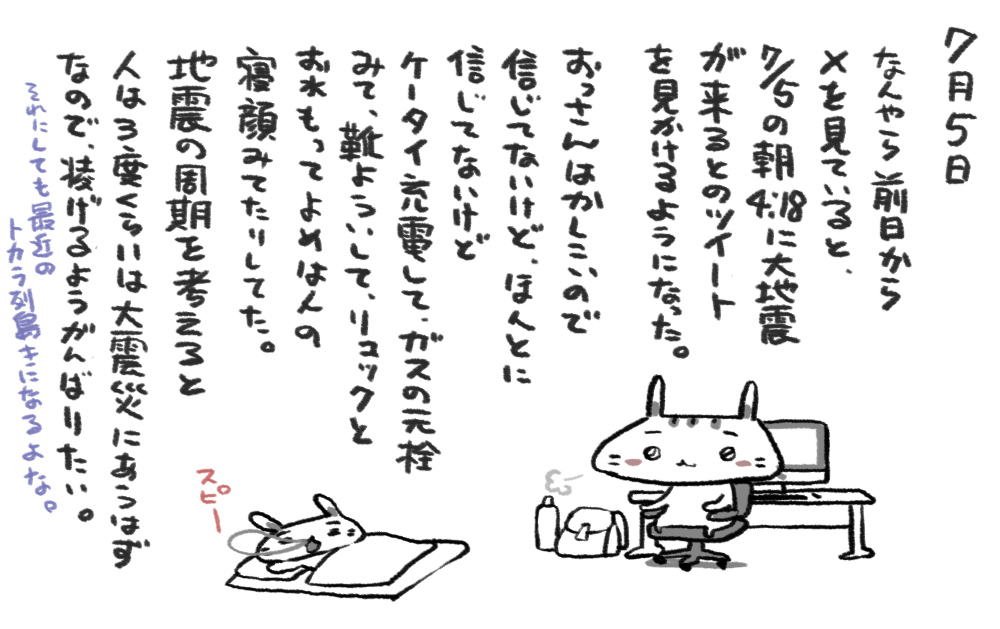 7月5日
なんやら前日から
Xを見ていると、
7/5の朝4:18に大地震
が来るとのツイート
を見かけるようになった。
おっさんはかしこいので
信じてないけど、ほんとに
信じてないけど
ケータイ充電して、ガスの元栓
みて、靴よういして、リュックと
お水もってよめはんの
寝顔みてたりしてた。
地震の周期を考えると
人は3度くらいは大震災にあうはず
なので、凌げるようがんばりたい。
それにしても最近の
トカラ列島きになるよな。
スピー